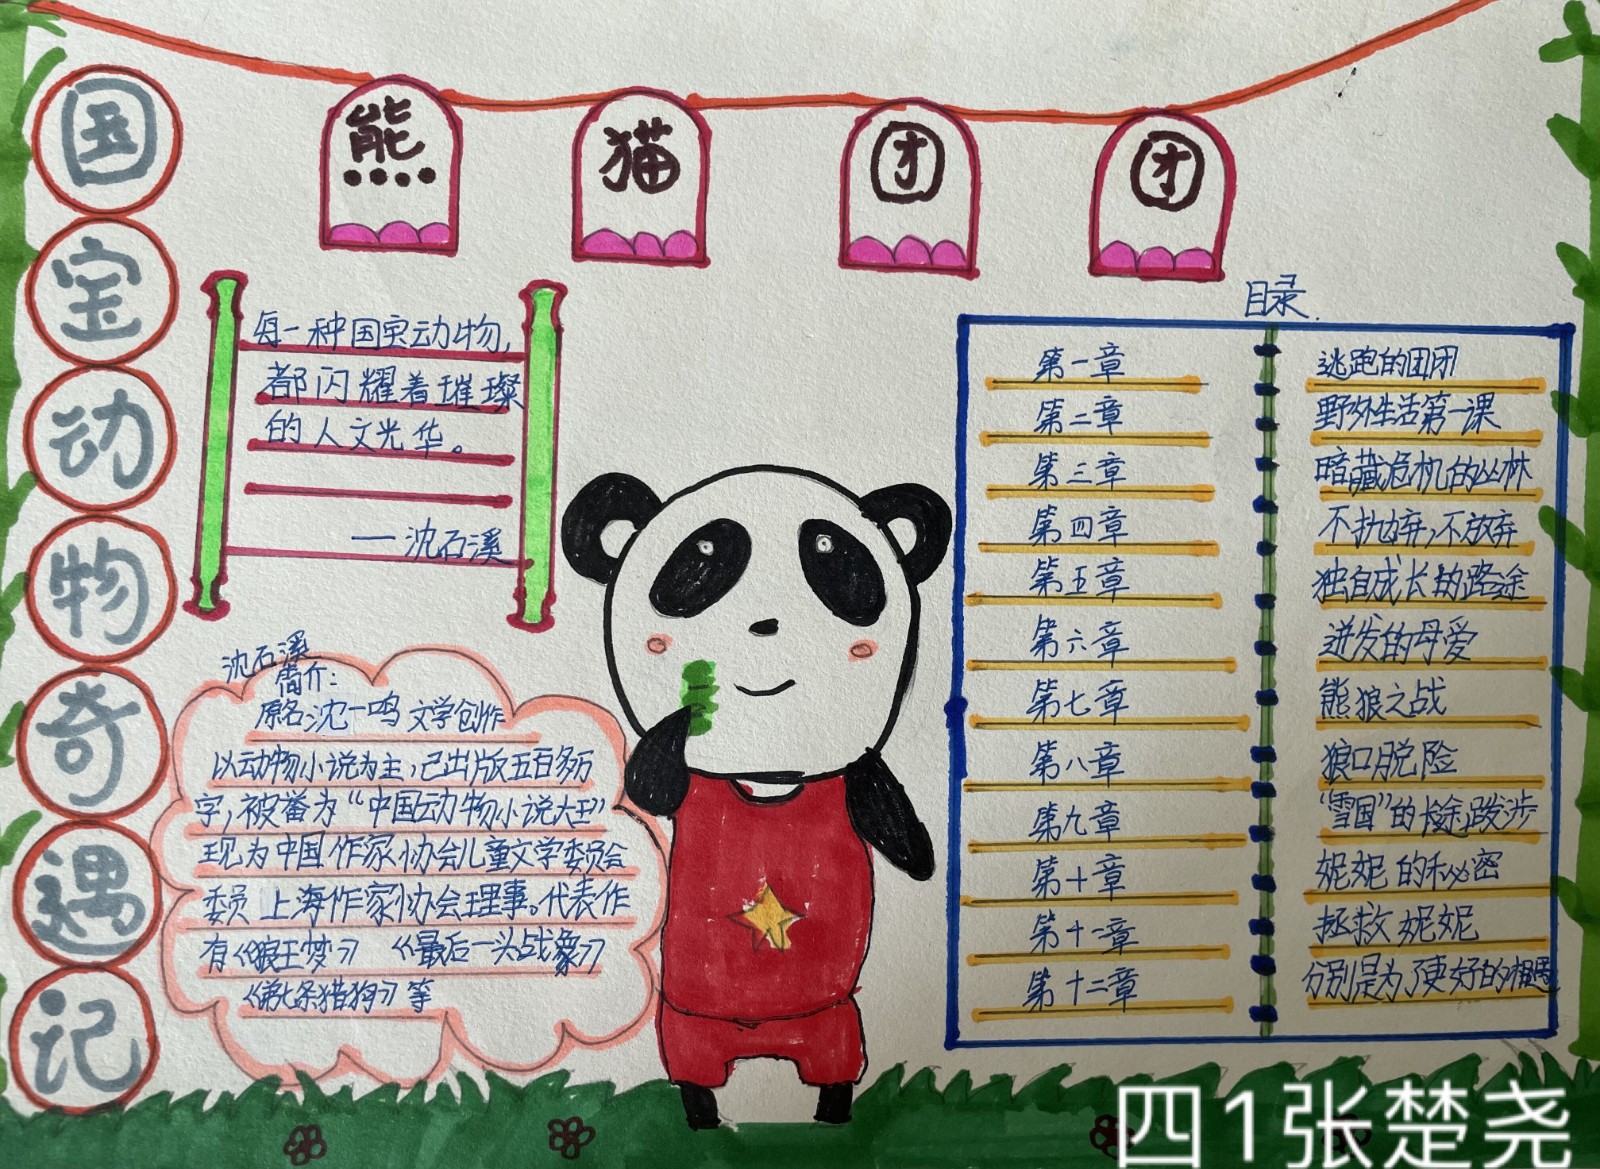 熊猫团团
国宝动物奇遇记
每一种国宝动物,
都闪耀着璀璨
的人文光华。
——沈石溪
沈石溪
简介:
原名:沈一鸣 文学创作
以动物小说为主,已出版五百多万
字,被誉为“中国动物小说大王”
现为中国作家协会儿童文学委员会
委员 上海作家协会理事。代表作
有《狼王梦》 《最后一头战象》
《第七条猎狗》等
目录.
第一章 逃跑的团团
第二章 野外生活第一课
第三章 暗藏危机的丛林
第四章 不抛弃,不放弃
第五章 独自成长的路途
第六章 迸发的母爱
第七章 熊狼之战
第八章 狼口脱险
第九章 “雪国”的长途跋涉
第十章 妮妮的秘密
第十一章 拯救妮妮
第十二章 分别是为了更好的相遇
四1张楚尧